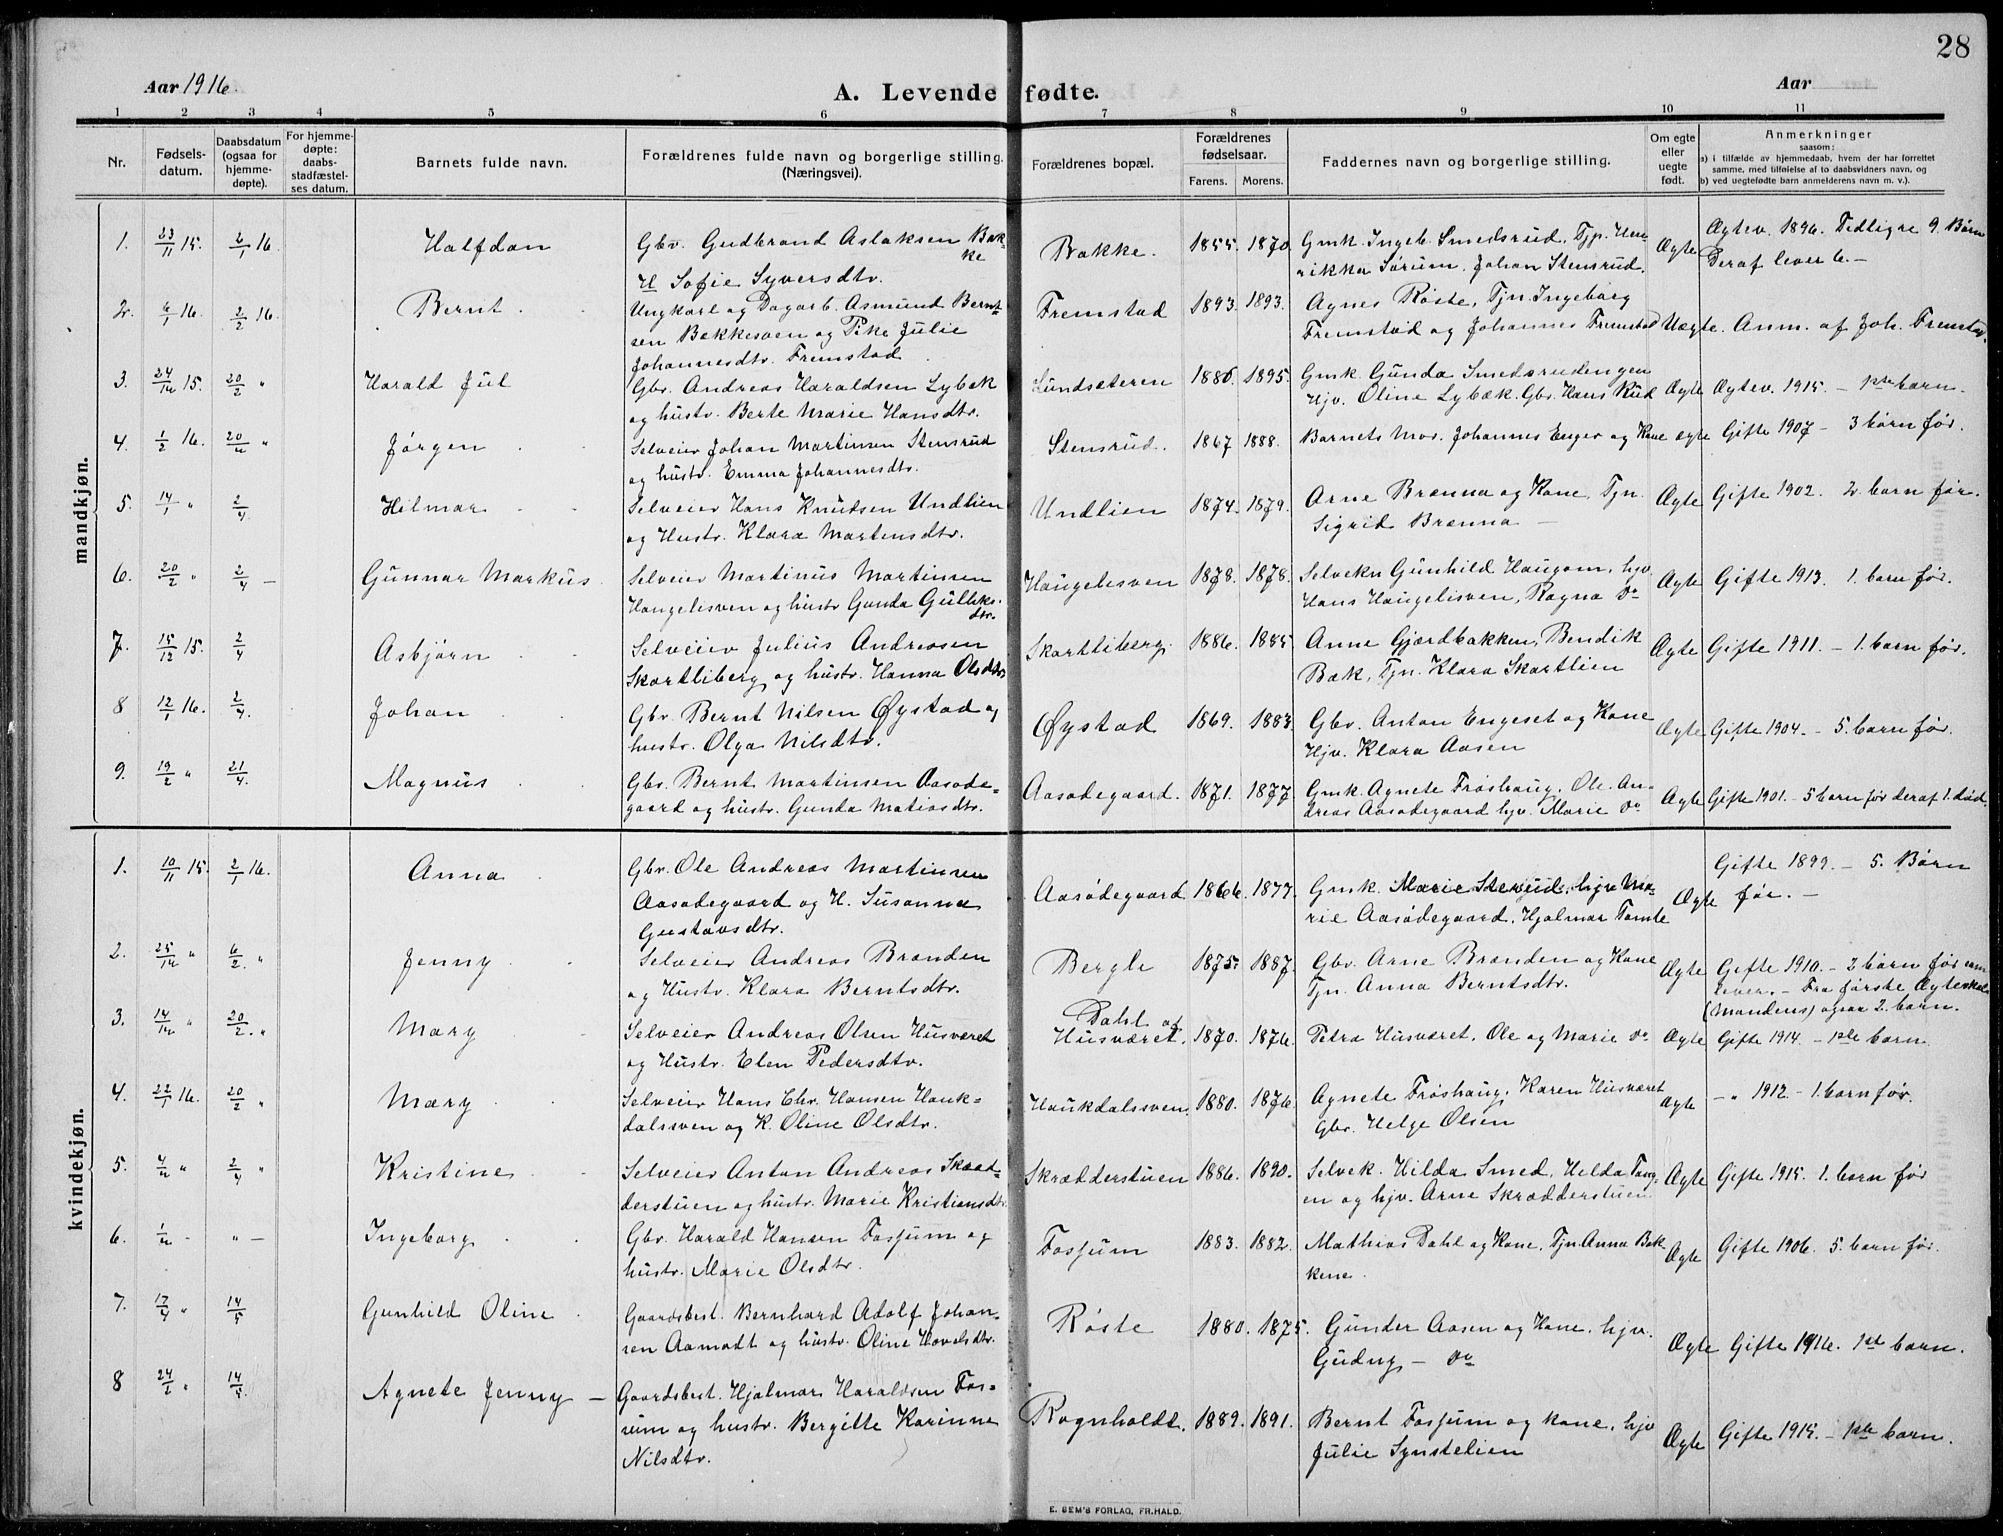 28
Aar 1916
A. Levende fødte.
Aar
1 2 3 4 5 6 7 8 9 10 11
Nr.
Fødsels-
datum.
Daabsdatum
(ogsaa for
hjemme-
døpte).
For hjemme-
døpte:
daabs-
stadfæstel-
ses datum.
Barnets fulde navn.
Forældrenes fulde navn og borgerlige stilling.
(Næringsvei).
Forældrenes bopæl.
Forældrenes
fødselsaar.
Farens. Morens.
Faddernes navn og borgerlige stilling.
Om egte
eller
uegte
født.
Anmerkninger
saasom:
a) i tilfælde av hjemmedaab, hvem der har forrettet
samme, med tilføielse af to daabsvidners navn, og
b) ved uegtefødte barn anmelderens navn m. v.).
mandkjøn.
1. 23/11 15. 2/1 16. Halfdan
Gbr. Gudbrand Aslaksen Bak-
ke
H Sofie Syversdtr.
Bakke. 1855. 1870.
Gmk. Ingeb. Smedsrud, Tjp. Hen-
rikka Sørum, Johan Stensrud.
Ægte
Ægtev. 1896. Tidligre 9. Børn
Deraf lever 6. –
2. 6/1 16. 2/2 16. Bernt
Ungkarl og Dagarb. Asmund Bernt-
sen Bakkesven og Pike Julie
Johannesdtr. Fremstad
Fremstad 1893. 1893.
Agnes Røste, Tjn. Ingeborg
Fremstad og Johannes Fremstad
Uægte. Anm. af Joh. Fremstad.
3. 24/12 15. 20/2 " Harald Jul
Gbr. Andreas Haraldsen Lybæk
og hustr. Berte Marie Hansdtr.
Lundsæteren 1886. 1895.
Gmk. Gunda Smedsrudengen
Hjv. Oline Lybæk. Gbr. Hans Rud
Ægte Ægtev. 1915. – 1ste barn.
4. 1/2 16. 20/2 " Jørgen
Selveier Johan Martinsen Stensrud
og hustr. Emma Johannesdtr.
Stensrud. 1867 1888.
Barnets Mor. Johannes Enger og Kone
ægte Gifte 1907 – 3 børn før.
5. 14/1 " 2/4 Hilmar
Selveier Hans Knudsen Undlien
og Hustr. Klara Martensdtr.
Undlien 1874. 1879.
Arne Brænna og Kone, Tjn.
Sigrid Brænna –
Ægte Gifte 1902. 2. barn før.
6. 20/2 " 2/4 – Gunnar Markus
Selveier Martinus Martinsen
Haugelisven og hustr Gunda Gulliks-
dtr.
Haugelisven 1878. 1878.
Selvekn Gunhild Haugom, hjv
Hans Haugelisven, Ragna do
Ægte Gifte 1913. 1. barn før.
7. 15/12 15. 2/4 Asbjørn
Selveier Julius Andreasen
Skartliberg og hustr. Hanna Olsdtr.
Skartliberg. 1886. 1885.
Anne Gjærdbakken, Bendik
Bæk, Tjn. Klara Skartlien
Ægte Gifte 1911. – 1. barn før.
8 12/1 16. 2/4. Johan
Gbr. Bernt Nilsen Øystad og
hustr. Olga Nilsdtr.
Øystad 1869. 1883.
Gbr. Anton Engeset og Kone
Hjv. Klara Aasen
Ægte Gifte 1904. – 5. barn før.
9. 19/2 " 21/4. Magnus
Gbr. Bernt Martinsen Aasøde-
gaard og hustr. Gunda Matiasdtr.
Aasødegaard. 1871. 1877
Gmk. Agnete Frøshaug. Ole An-
dreas Aasødegaard hjv. Marie do
Ægte Gifte 1901. – 5 barn før deraf 1. død.
kvindekjøn.
1. 10/11 15. 2/1 16. Anna
Gbr. Ole Andreas Martinsen
Aasødegaard og H. Susanna
Gustavsdtr.
Aasødegaard 1866. 1877.
Gmk. Marie Stensrud, Pigre Ma-
rie Aasødegaard, Hjalmar Tomte
Ægte
Gifte 1899. – 5. Børn
før. –
2. 25/12 " 6/2. " Jenny
Selveier Andreas Brænden
og Hustr. Klara Berntsdtr.
Bergle 1875. 1887.
Gbr. Arne Brænden og Kone
Tjn. Anna Berntsdtr.
Ægte
Gifte 1910. – 2 børn før som
lever. – Fra første Ægteskab
(Mandens) ogsaa 2. barn.
3. 14/12 " 20/2. " Mary
Selveier Andreas Olsen Husværet
og Hustr. Elen Pedersdtr.
Dahl af
Husværet. 1870. 1876.
Petra Husværet, Ole og Marie do
Ægte Gifte 1914. – 1ste barn.
4. 22/1 16. 20/2 " Mary
Selveier Hans Chr. Hansen Hauk-
dalssven og K. Oline Olsdtr.
Haukdalssven. 1880. 1876.
Agnete Frøshaug, Karen Husværet
Gbr. Helge Olsen
Ægte – " 1912 – 1. barn før.
5. 4/2 " 2/4 " Kristine
Selveier Anton Andreas Skræd-
derstuen og hustr. Marie Kristiansdtr.
Skrædderstuen 1886. 1890.
Selvek. Hilda Smed, Helda Tang-
en og hjv. Arne Skrædderstuen
Ægte Gifte 1915. 1. barn før
6. 1/2 – " – Ingeborg
Gbr. Harald Hansen Fosjum og
hustr. Marie Olsdtr.
Fosjum 1883. 1882.
Mathias Dahl og Kone, Tjn. Anna Bak
kene.
Ægte Gifte 1906. 5. barn før.
7. 17/4 " 14/5 Gunhild Oline
Gaardsbest. Bernhard Adolf Johan-
sen Aamodt og hustr. Oline Hovelsdtr.
Røste 1880. 1875.
Gunder Aasen og Kone, hjv.
Gudny – do
Ægte Gifte 1916. 1ste barn.
8 24/2 " 14/5. Agnete Jenny –
Gaardsbest. Hjalmar Haraldsen Fos-
sum og hustr. Bergitte Karinne
Nilsdtr.
Rognholdt. 1889. 1891.
Bernt Fosjum og kone, hjv
Julie Synstelien
Ægte Gifte 1915. – 1ste barn.
E. SEM'S FORLAG, FR.HALD.